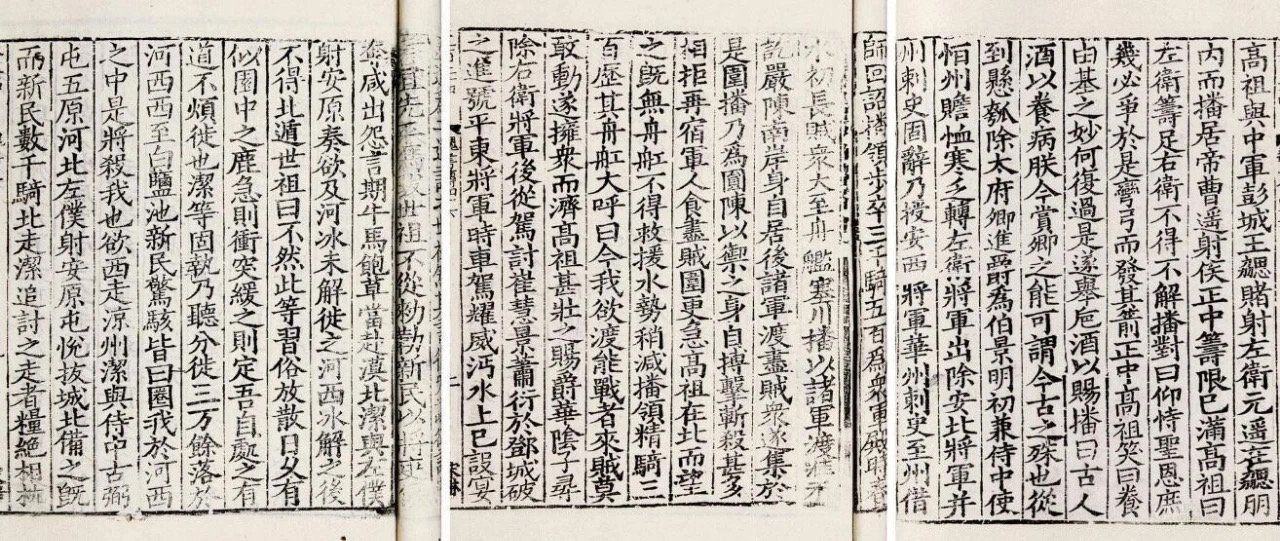 世祖不從勑勒新民以將吏
奪咸出怨言期牛馬飽草當赴漠北潔與左僕
射安原奏欲及河冰未解徙之河西冰解之後
不得北遁世祖曰不然此等習俗放散日久有
似園中之鹿急則衝突緩之則定吾自處之有
道不煩徙也潔等固執乃聽分徙三万餘落於
河西西至白鹽池新民驚駭皆曰圈我於河西
之中是將殺我也欲西走涼州潔與侍中古弼
屯五原河北左僕射安原屯悅拔城北備之既
而新民數千騎北走潔追討之走者糧絕相枕
師回詔播領步卒三千騎五百為衆軍殿時春
水初長賊衆大至舟艦塞川播以諸軍渡淮未
訖嚴陳南岸身自居後諸軍渡盡賊衆遂集於
是圍播乃為圓陳以禦之身自搏擊斬殺甚多
相拒再宿軍人食盡賊圍更急高祖在北而望
之既無舟舡不得救援水勢稍減播領精騎三
百歷其舟舡大呼曰今我欲渡能戰者來賊莫
敢動遂擁衆而濟高祖甚壯之賜爵華陰子尋
除右衛將軍後從駕討崔慧景蕭衍於鄧城破
之進號平東將軍時車駕耀威沔水上巳設宴
高祖與中軍彭城王勰賭射左衛元遥在勰朋
内而播居帝曹遥射侯正中籌限已滿高祖曰
左衛籌足右衛不得不解播對曰仰恃聖恩庶
幾必爭於是彎弓而發其箭正中高祖笑曰養
由基之妙何復過是遂舉卮酒以賜播曰古人
酒以養病朕今賞卿之能可謂今古之殊也從
到懸瓠除太府卿進爵為伯景明初兼侍中使
恒州贍恤寒乏轉左衛將軍出除安北將軍并
州刺史固辭乃授安西將軍華州刺史至州借